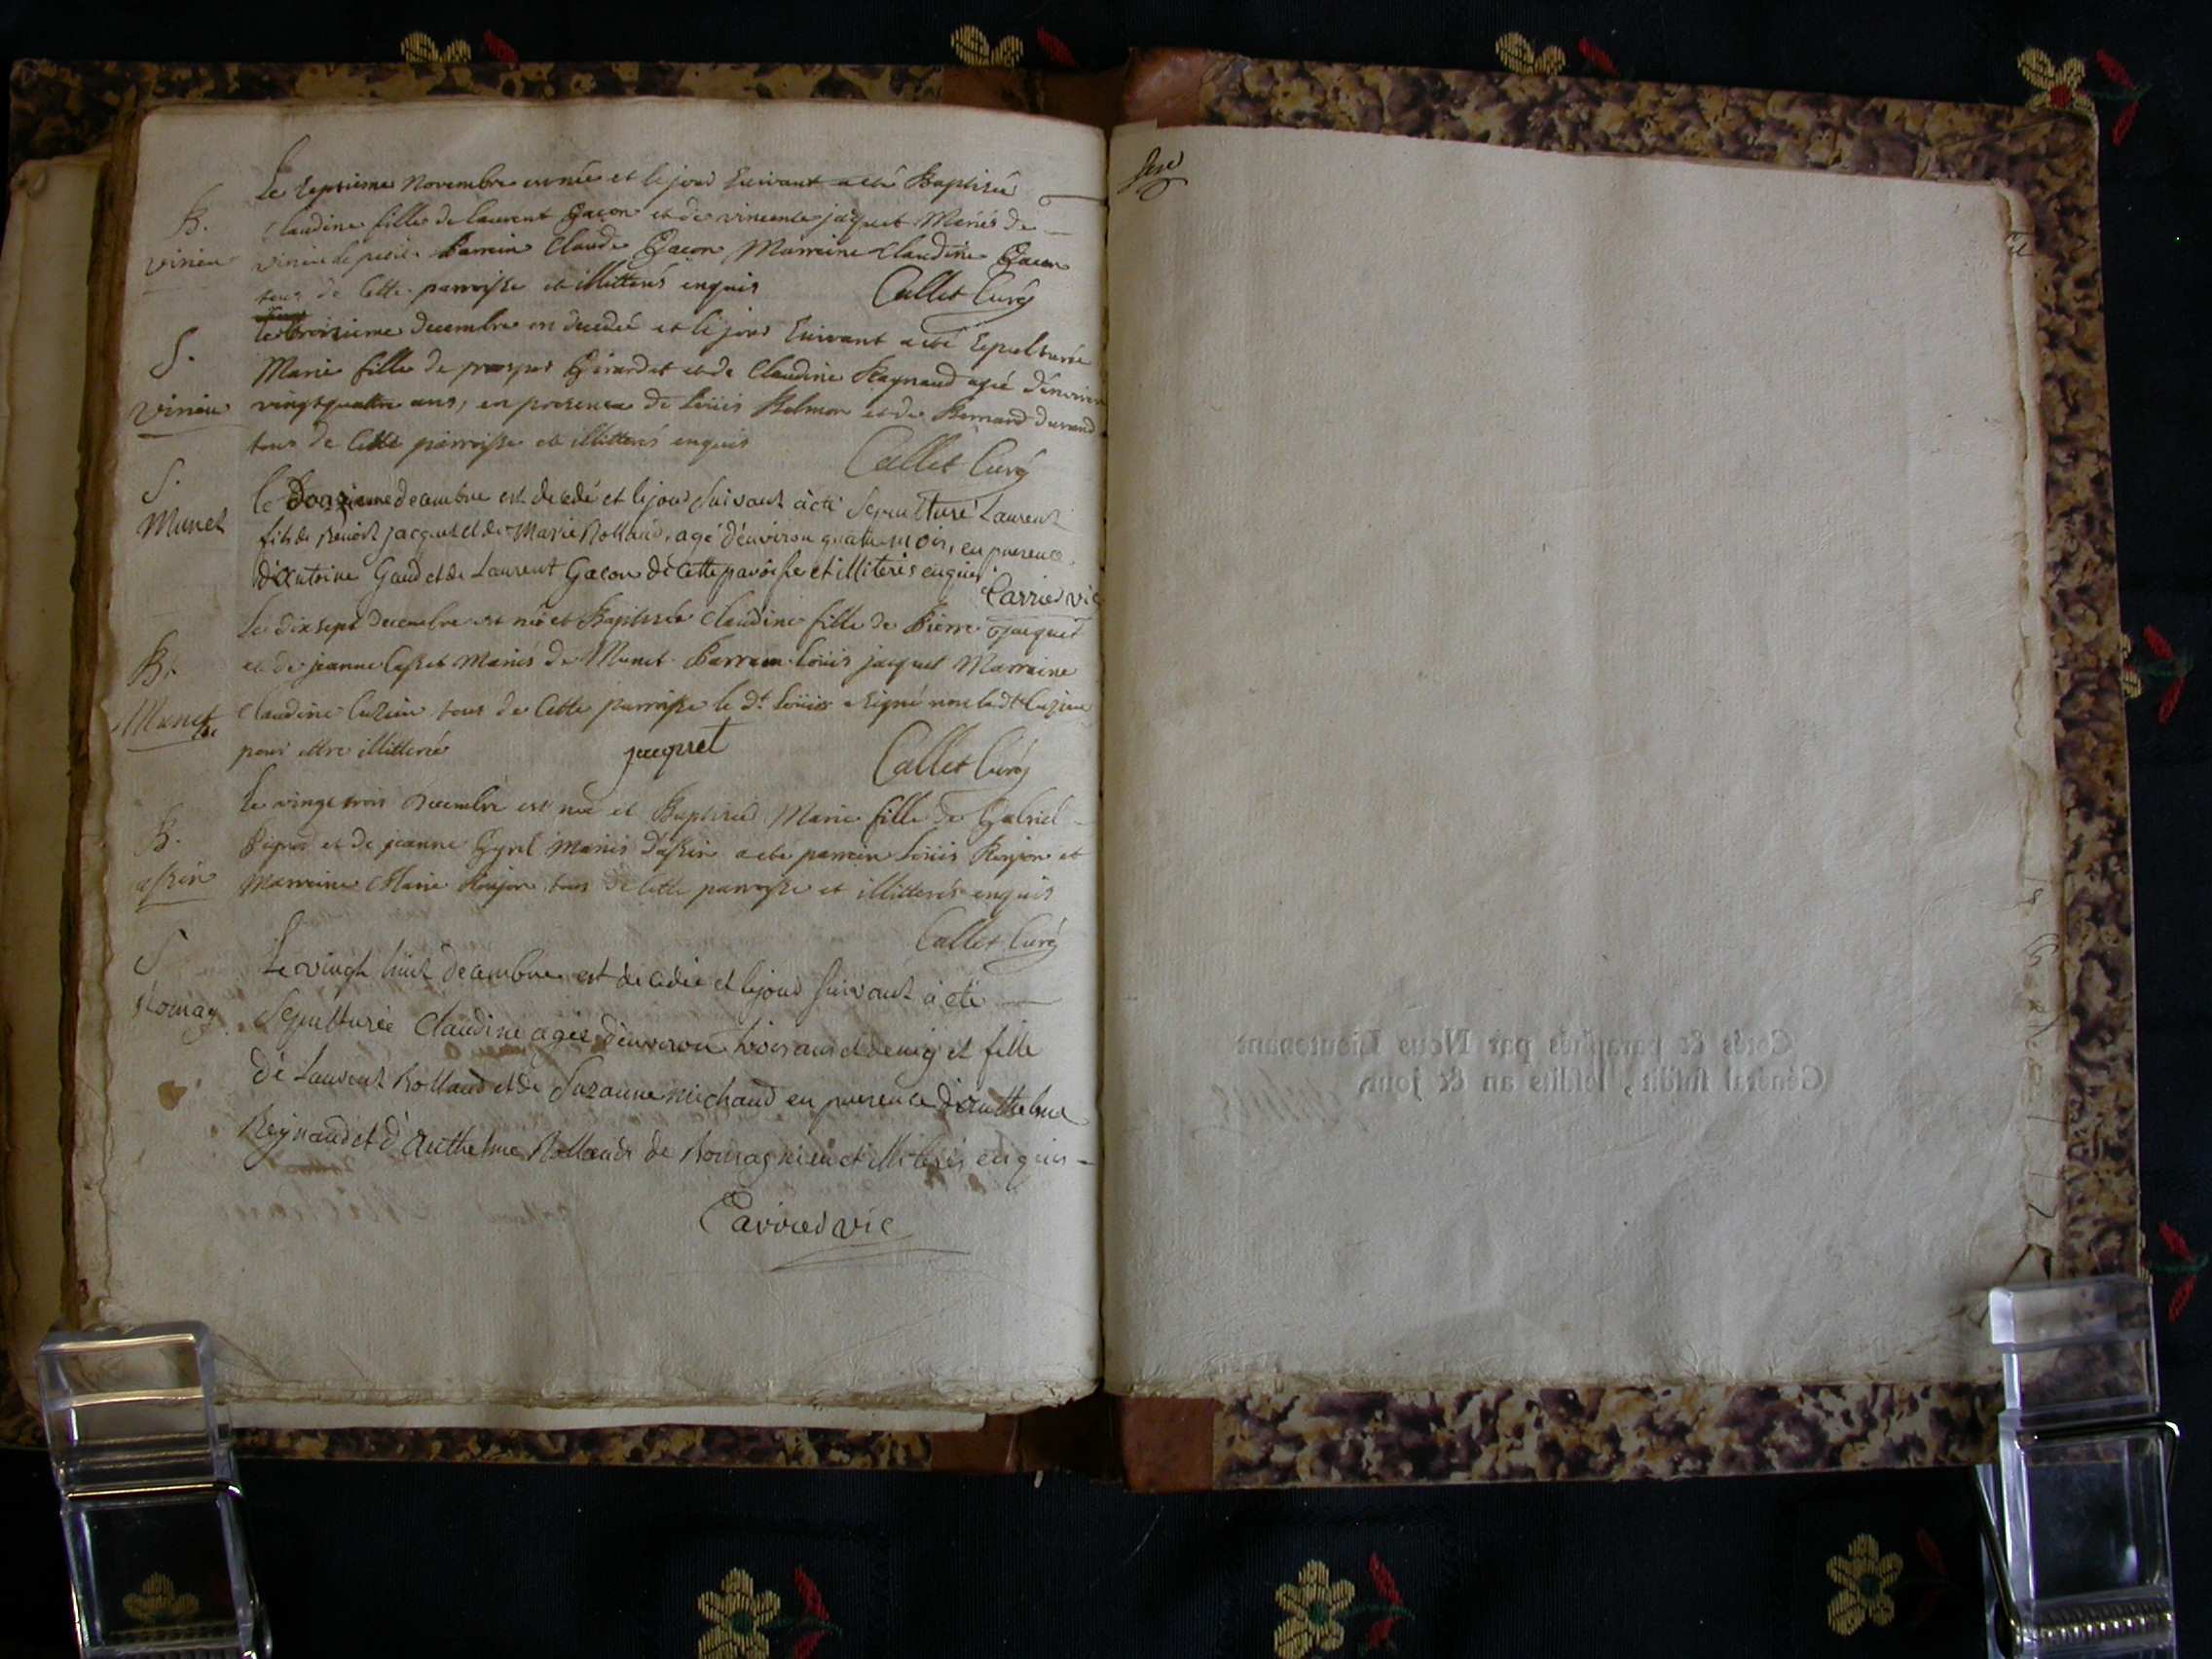 Le septieme Novembre est née et le jour suivant a été Baptisée
B.
Claudine fille de laurent Gacon et de vincente jacquet Mariés de
virieu
virieu le petit. Parrein Claude Gacon Marreine Claudine Gacon
tous de Cette parroisse et illitterés enquis Callet Curé
S.
le troizieme decembre en decedeé et le jour suivant a été sepulturée
Marie fille de prosper Girardet et de Claudine Raynaud ageé d'environ
virieu
vingtquattre ans, en presence de Loüis Belmon et de Bernard durand
tous de Cette parroisse et illitterés enquis Callet Curé
S.
le Douzieme decembre est decedé et le jour suivant à eté sepulturé Laurent
Munet
fils de Benoit jacquet et de Marie Rolland, agé d'environ quatre mois, en presence
d'Antoine Gaud et de Laurent Gacon de cette paroisse et illiterés enquis.
Carrier vic
Le dix sept decembre est neé et Baptisée Claudine fille de Pierre jacquet
B.
et de jeanne Mariés de Munet. Parrein Loüis jacquet Marreine
Munet
Claudine Cuzin tous de Cette parroisse le dt. Loüis a signé non la dte Cuzin
pour ettre illitterée jacquet Callet Curé
Le vingt trois decembre est neé et Baptisée Marie fille de Gabriel
B.
et de jeanne Mariés d'assin a eté parrein Loüis Roujon et
assin
Marreine Marie Roujon tous de Cette parroisse et illitterés enquis
Callet Curé
S
Le vingt huit decembre est decedée et le jour suivant à eté
Romag.
Sepulturée Claudine agée d'environ trois ans et demy et fille
de Laurent Rolland et de Suzanne michaud en presence d'anthelme
Reynaud et d'Anthelme Rolland de Romagnieu et illiterés enquis
Carrier vic
Cotés & paraphés par Nous Lieutenant
Général susdit, lesdits an & jour.